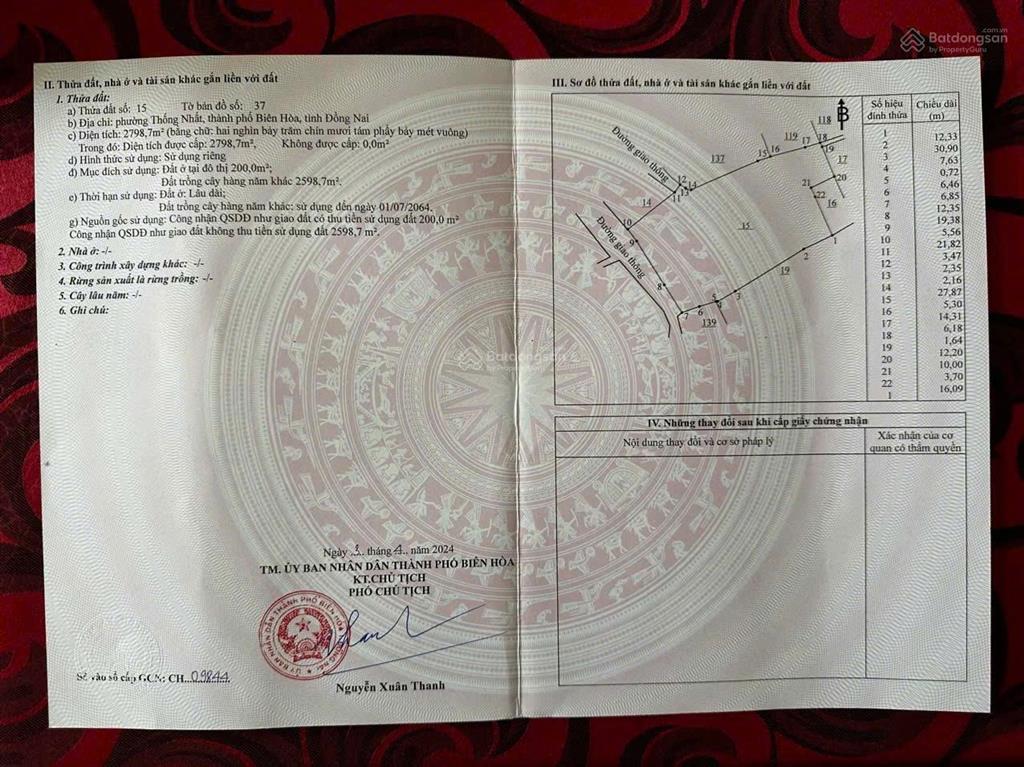 Batdongsan.com.vn
by PropertyGuru
II. Thửa đất, nhà ở và tài sản khác gắn liền với đất
1. Thửa đất:
a) Thửa đất số: 15 Tờ bản đồ số: 37
b) Địa chỉ: phường Thống Nhất, thành phố Biên Hòa, tỉnh Đồng Nai
c) Diện tích: 2798,7m² (bằng chữ: hai nghìn bảy trăm chín mươi tám phẩy bảy mét vuông)
Trong đó: Diện tích được cấp: 2798,7m², Không được cấp: 0,0m²
d) Hình thức sử dụng: Sử dụng riêng
đ) Mục đích sử dụng: Đất ở tại đô thị 200,0m²;
Đất trồng cây hàng năm khác 2598,7m².
e) Thời hạn sử dụng: Đất ở: Lâu dài;
Đất trồng cây hàng năm khác: sử dụng đến ngày 01/07/2064.
g) Nguồn gốc sử dụng: Công nhận QSDĐ như giao đất có thu tiền sử dụng đất 200,0 m²
Công nhận QSDĐ như giao đất không thu tiền sử dụng đất 2598,7 m².
2. Nhà ở: -/-
3. Công trình xây dựng khác: -/-
4. Rừng sản xuất là rừng trồng: -/-
5. Cây lâu năm: -/-
6. Ghi chú:
Batdongsan
by PropertyGuru
Ngày 3 tháng 4 năm 2024
TM. ỦY BAN NHÂN DÂN THÀNH PHỐ BIÊN HÒA
KT.CHỦ TỊCH
PHÓ CHỦ TỊCH
ỦY BAN NHÂN DÂN THÀNH PHỐ BIÊN HÒA
Nguyễn Xuân Thanh
Số vào sổ cấp GCN: CH...09844
III. Sơ đồ thửa đất, nhà ở và tài sản khác gắn liền với đất
B
118
119
18
17
19
16
15
137
17
20
21
22
16
Đường giao thông
12
14
13
11
14
15
10
9
Đường giao thông
8
1
2
19
3
5
4
6
7
139
Số hiệu đỉnh thửa Chiều dài (m)
1
12,33
2
30,90
3
7,63
4
0,72
5
6,46
6
6,85
7
12,35
8
19,38
9
5,56
10
21,82
11
3,47
12
2,35
13
2,16
14
27,87
15
5,30
16
14,31
17
6,18
18
1,64
19
12,20
20
10,00
21
3,70
22
16,09
1
IV. Những thay đổi sau khi cấp giấy chứng nhận
Nội dung thay đổi và cơ sở pháp lý
Xác nhận của cơ
quan có thẩm quyền